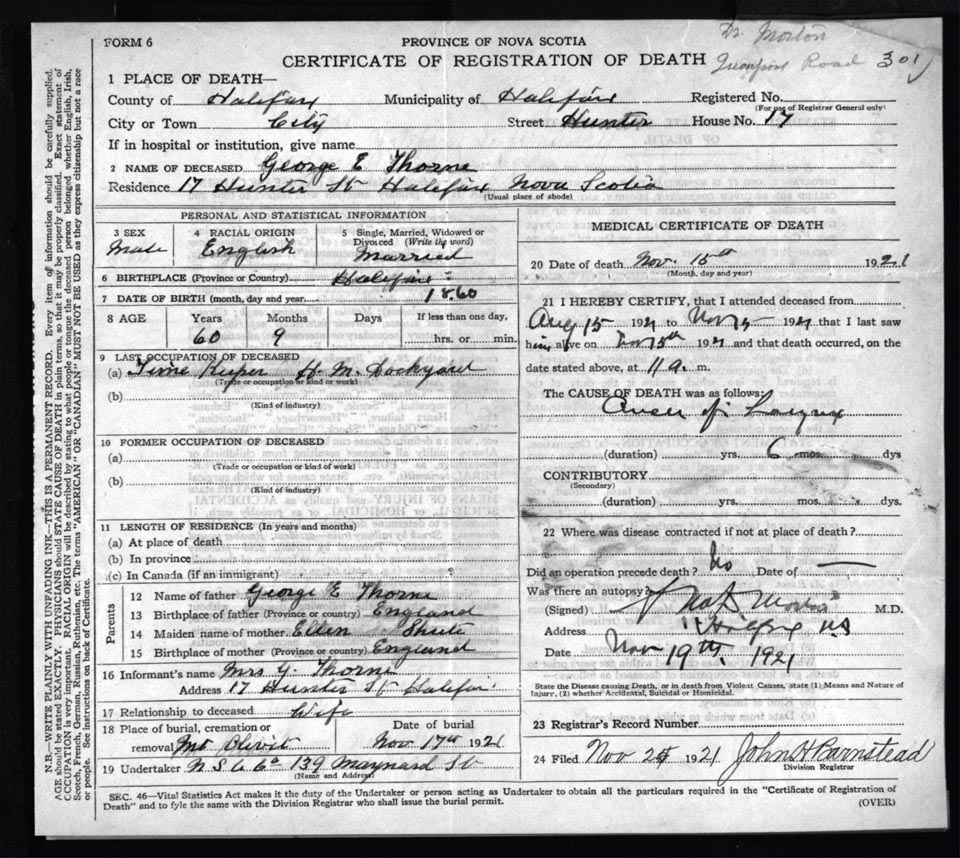 FORM 6
PROVINCE OF NOVA SCOTIA
Dr Morton
CERTIFICATE OF REGISTRATION OF DEATH
Road 301
1 PLACE OF DEATH—
County of Halifax Municipality of Halifax Registered No.
(For use of Registrar General only)
City or Town City Street Hunter House No. 17
If in hospital or institution, give name
2 NAME OF DECEASED George E Thorne
Residence 17 Hunter St Halifax Nova Scotia
(Usual place of abode)
PERSONAL AND STATISTICAL INFORMATION
3 SEX
Male
4 RACIAL ORIGIN
English
5 Single, Married, Widowed or
Divorced (Write the word)
Married
6 BIRTHPLACE (Province or Country) Halifax
7 DATE OF BIRTH (month, day and year) 1860
8 AGE Years Months Days If less than one day,
60 9 hrs. or min.
9 LAST OCCUPATION OF DECEASED
(a) Time Keeper H. M. Dockyard
(Trade or occupation or kind or work)
(b)
(Kind of industry)
10 FORMER OCCUPATION OF DECEASED
(a)
(Trade or occupation or kind of work)
(b)
(Kind of industry)
11 LENGTH OF RESIDENCE (In years and months)
(a) At place of death
(b) In province
(c) In Canada (if an immigrant)
Parents
12 Name of father George E Thorne
13 Birthplace of father (Province or country) England
14 Maiden name of mother Ellen Shute
15 Birthplace of mother (Province or country) England
16 Informant's name Mrs G. Thorne
Address 17 Hunter St Halifax
17 Relationship to deceased Wife
18 Place of burial, cremation or
removal Mt Olivit
Date of burial
Nov 17th 1921
19 Undertaker N S U Co 139 Maynard St
(Name and Address)
MEDICAL CERTIFICATE OF DEATH
20 Date of death Nov. 15th 1921
(Month, day and year)
21 I HEREBY CERTIFY, that I attended deceased from
Aug 15 1921 to Nov 15 1921 that I last saw
him alive on Nov 1921 and that death occurred, on the
date stated above, at 11 a. m.
The CAUSE OF DEATH was as follows:
Cancer of Larynx
(duration) yrs. 6 mos. dys
CONTRIBUTORY
(Secondary)
(duration) yrs. mos. dys.
22 Where was disease contracted if not at place of death?
Did an operation precede death? No Date of —
Was there an autopsy?
(Signed) M.D.
Address Halifax N.S
Date Nov 19th, 1921
State the Disease causing Death, or in death from Violent Causes, state (1) Means and Nature of
Injury, (2) whether Accidental, Suicidal or Homicidal.
23 Registrar's Record Number
24 Filed Nov 1921 John H Barnstead
Division Registrar
SEC. 46—Vital Statistics Act makes it the duty of the Undertaker or person acting as Undertaker to obtain all the particulars required in the "Certificate of Registration of
Death" and to fyle the same with the Division Registrar who shall issue the burial permit.
(OVER)
N.B.—WRITE PLAINLY WITH UNFADING INK—THIS IS A PERMANENT RECORD. Every item of information should be carefully supplied.
AGE should be stated EXACTLY. PHYSICIANS should STATE CAUSE OF DEATH in plain terms, so that it may be properly classified. Exact statement of
OCCUPATION is very important. RACIAL ORIGIN will be described by stating to what people or tongue the deceased person belonged, whether English, Irish,
Scotch, French, German, Russian, Ruthenian, etc. The terms "AMERICAN" OR "CANADIAN" MUST NOT BE USED as they express citizenship but not a race
or people. See instructions on back of Certificate.